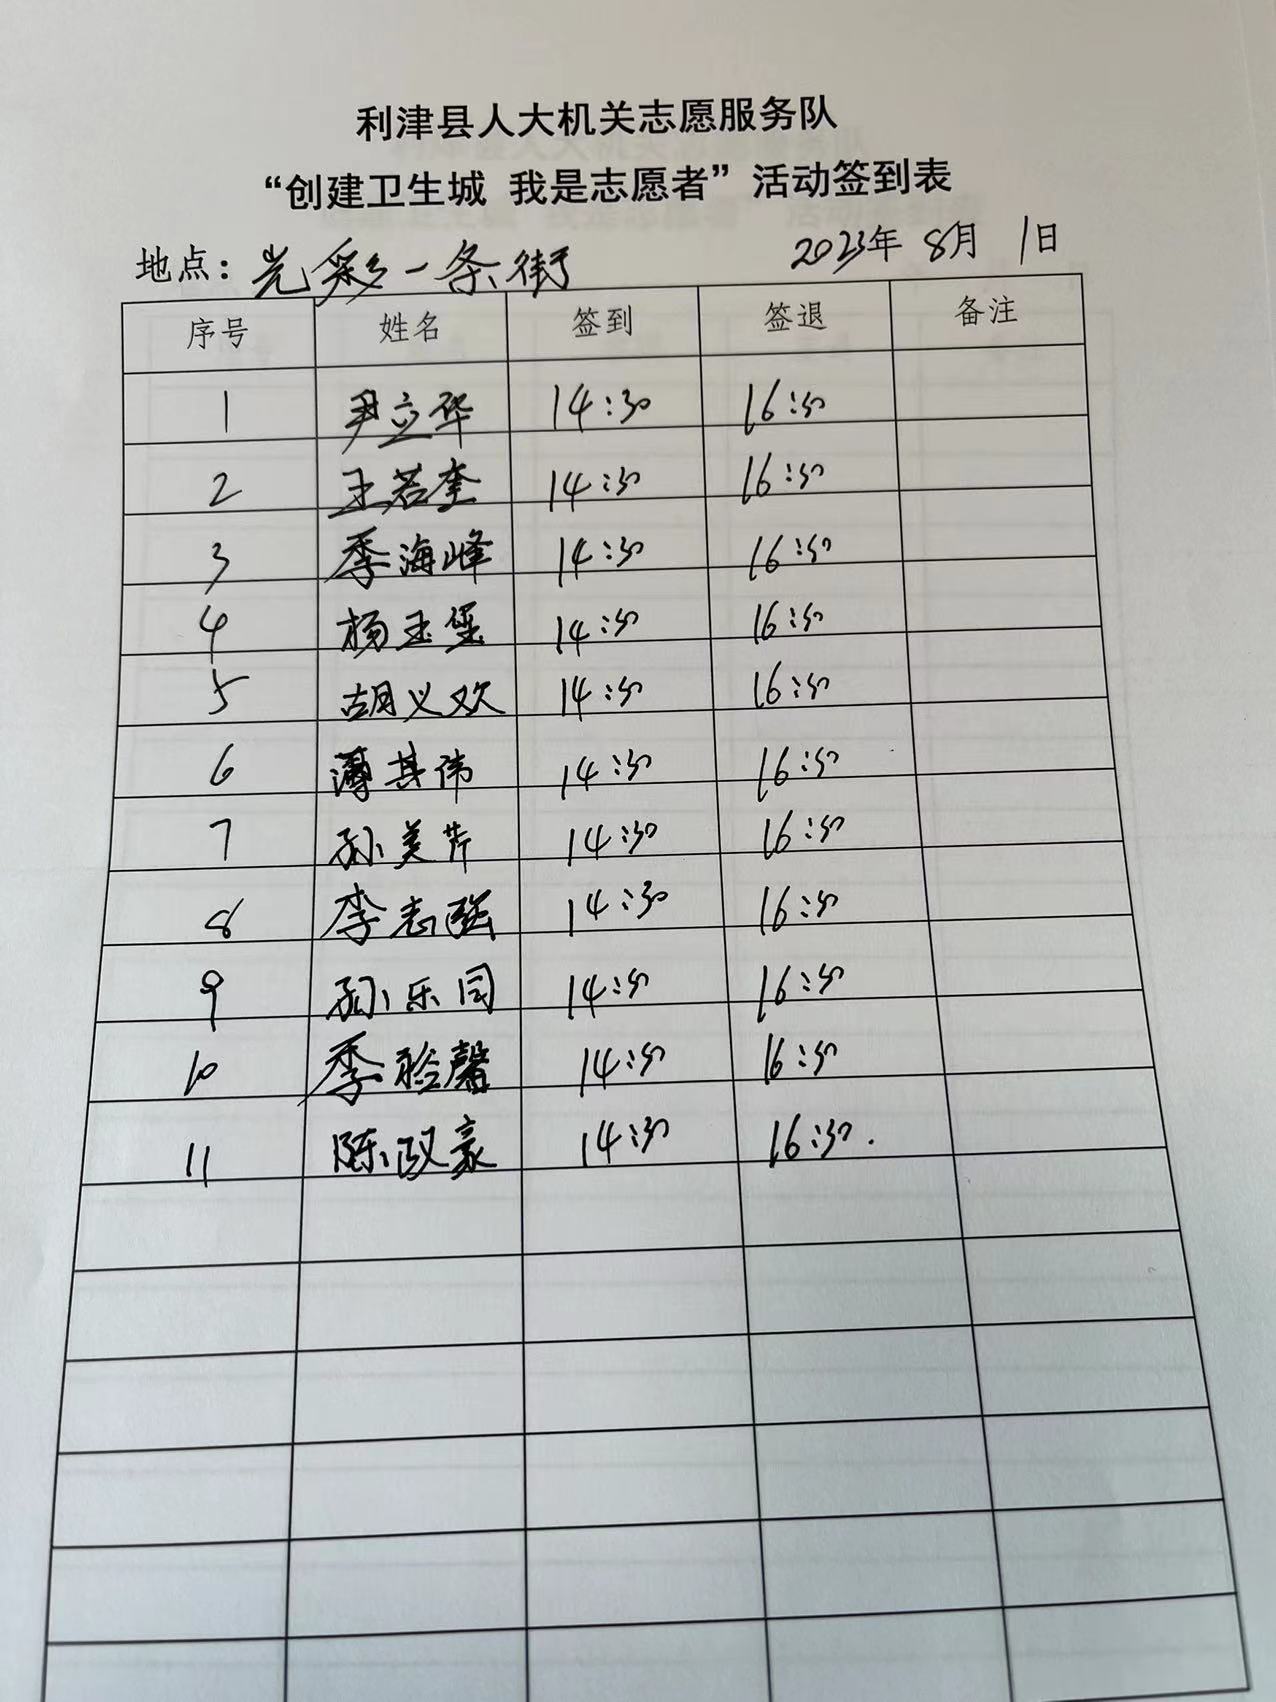 利津县人大机关志愿服务队
“创建卫生城 我是志愿者”活动签到表
地点：光彩一条街 2023年 8月 1日
序号 姓名 签到 签退 备注
1 尹立华 14:30 16:30
2 王若奎 14:30 16:30
3 季海峰 14:30 16:30
4 杨玉堡 14:30 16:30
5 胡义欢 14:30 16:30
6 薄其伟 14:30 16:30
7 孙美芹 14:30 16:30
8 李志强 14:30 16:30
9 孙乐同 14:30 16:30
10 季 馨 14:30 16:30
11 陈政豪 14:30 16:30.